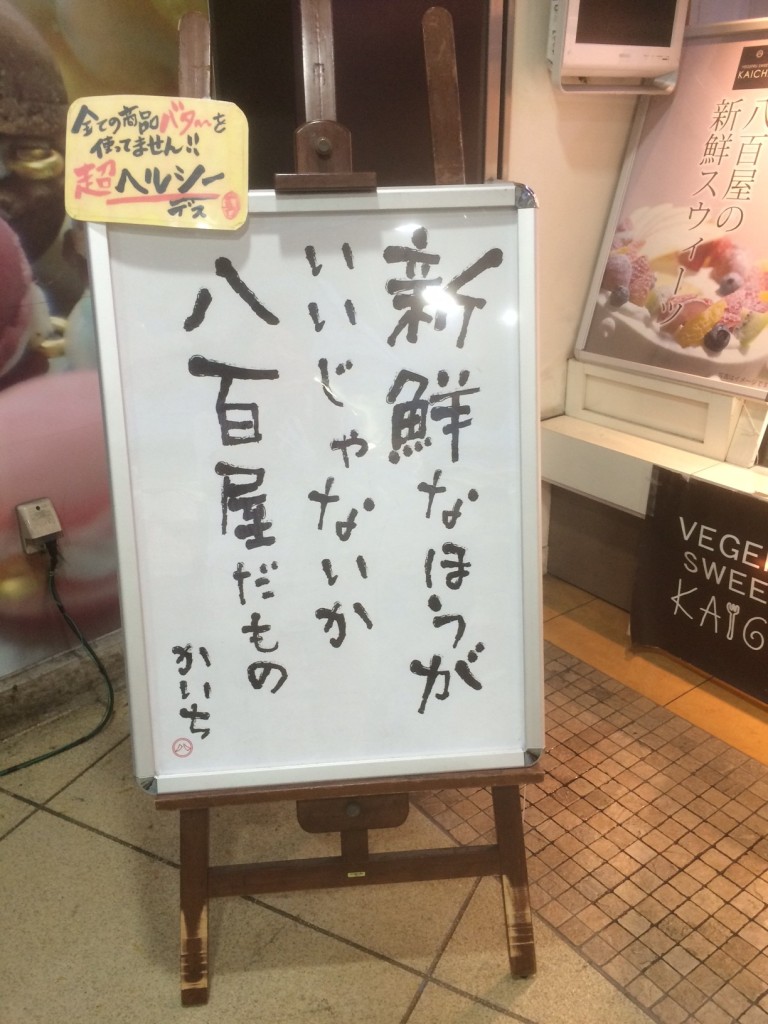 全ての商品バターを
使ってません!!
超ヘルシー
デス
新鮮なほうが
いいじゃないか
八百屋だもの
かいち
KAICH
八百屋の
新鮮スウィーツ
VEGE
SWEE
KAIC